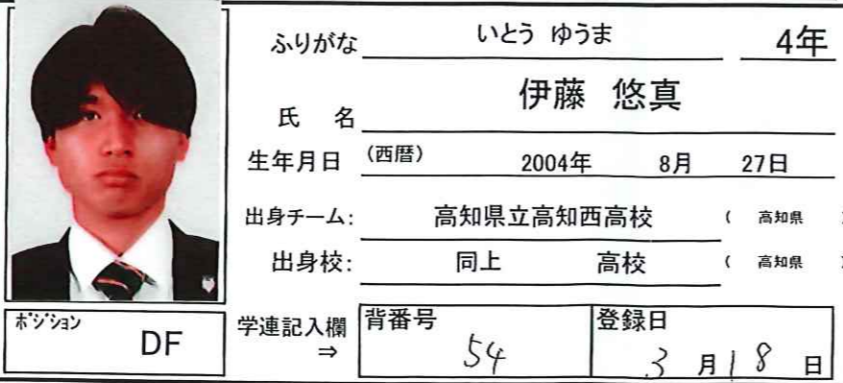 ふりがな いとう ゆうま 4年
氏 名 伊藤 悠真
生年月日 (西暦) 2004年 8月 27日
出身チーム: 高知県立高知西高校 ( 高知県 )
出身校: 同上 高校 ( 高知県 )
ポジション DF
学連記入欄 ⇒ 背番号 54 登録日 3月18日